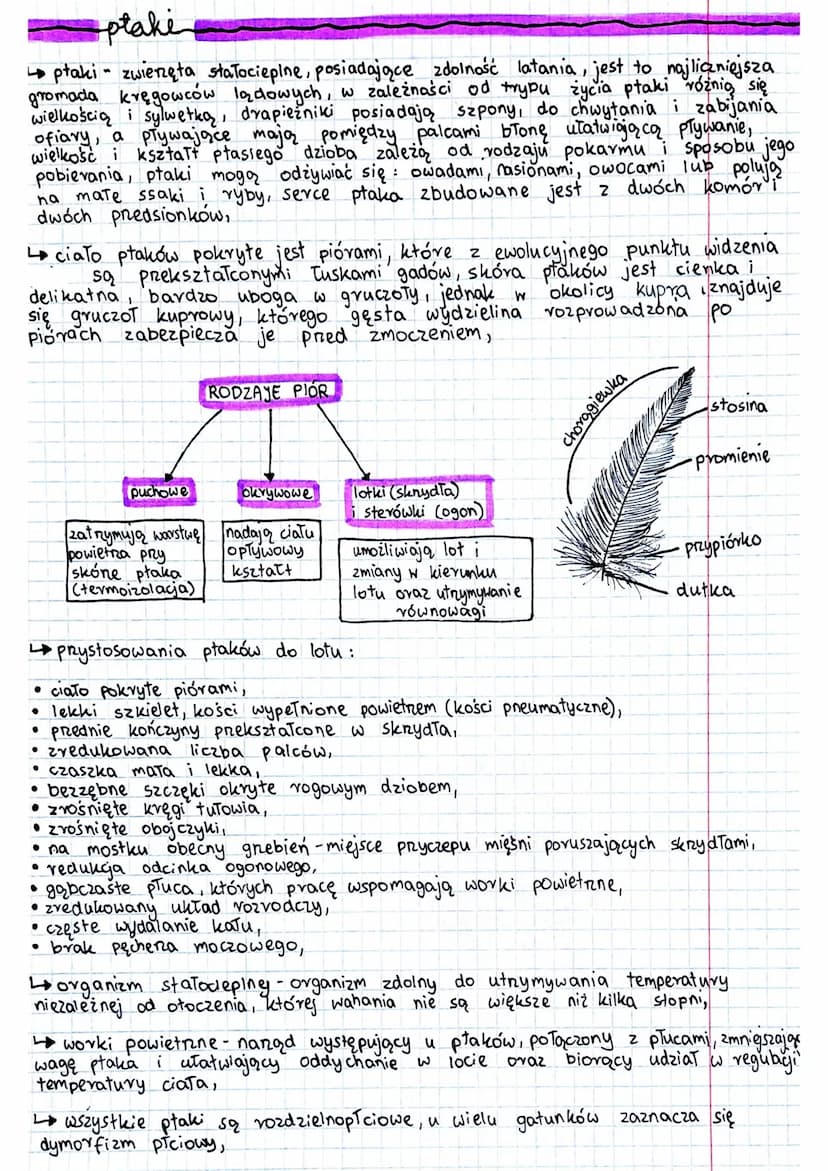 ptaki
↳ ptaki - zwierzęta stałocieplne, posiadające zdolność latania, jest to najliczniejsza
gromada kręgowców lądowych, w zależności od trypu życia ptaki różnią się
wielkością i sylwetką, drapieżniki posiadają szpony, do chwytania i zabijania
ofiary, a pływające mają pomiędzy palcami błonę ułatwiającą pływanie,
wielkość i kształt ptasiego dzioba zależą od rodzaju pokarmu i sposobu jego
pobierania, ptaki mogą odżywiać się: owadami, nasionami, owocami lub polują
na małe ssaki i ryby, serce ptaka zbudowane jest z dwóch komór i
dwóch przedsionków,
↳ ciało ptaków pokryte jest piórami, które z ewolucyjnego punktu widzenia
są przekształconymi łuskami gadów, skóra ptaków jest cienka i
delikatna, bardzo uboga w gruczoły, jednak w okolicy kupra znajduje
się gruczoł kuprowy, którego gęsta wydzielina rozprowadzona po
piórach zabezpiecza je przed zmoczeniem,
RODZAJE PIÓR
puchowe
okrywowe
lotki (skrzydła)
i sterówki (ogon)
zatrzymują warstwę
powietrza przy
skórze ptaka
(termoizolacja)
nadają ciału
opływowy
kształt
umożliwiają lot i
zmiany w kierunku
lotu oraz utrzymywanie
równowagi
chorągiewka
stosina
promienie
przypiórko
dutka
↳ przystosowania ptaków do lotu:
• ciało pokryte piórami,
• lekki szkielet, kości wypełnione powietrzem (kości pneumatyczne),
• przednie kończyny przekształcone w skrzydła,
• zredukowana liczba palców,
• czaszka mała i lekka,
• bezzębne szczęki okryte rogowym dziobem,
• zrośnięte kręgi tułowia,
• zrośnięte obojczyki,
• na mostku obecny grzebień - miejsce przyczepu mięśni poruszających skrzydłami,
• redukcja odcinka ogonowego,
• gąbczaste płuca, których pracę wspomagają worki powietrzne,
• zredukowany układ rozrodczy,
• częste wydalanie kału,
• brak pęcherza moczowego,
↳ organizm stałocieplny - organizm zdolny do utrzymywania temperatury
niezależnej od otoczenia, której wahania nie są większe niż kilka stopni,
↳ worki powietrzne - narząd występujący u ptaków, połączony z płucami, zmniejszając
wagę ptaka i ułatwiający oddychanie w locie oraz biorący udział w regulacji
temperatury ciała,
↳ wszystkie ptaki są rozdzielnopłciowe, u wielu gatunków zaznacza się
dymorfizm płciowy,